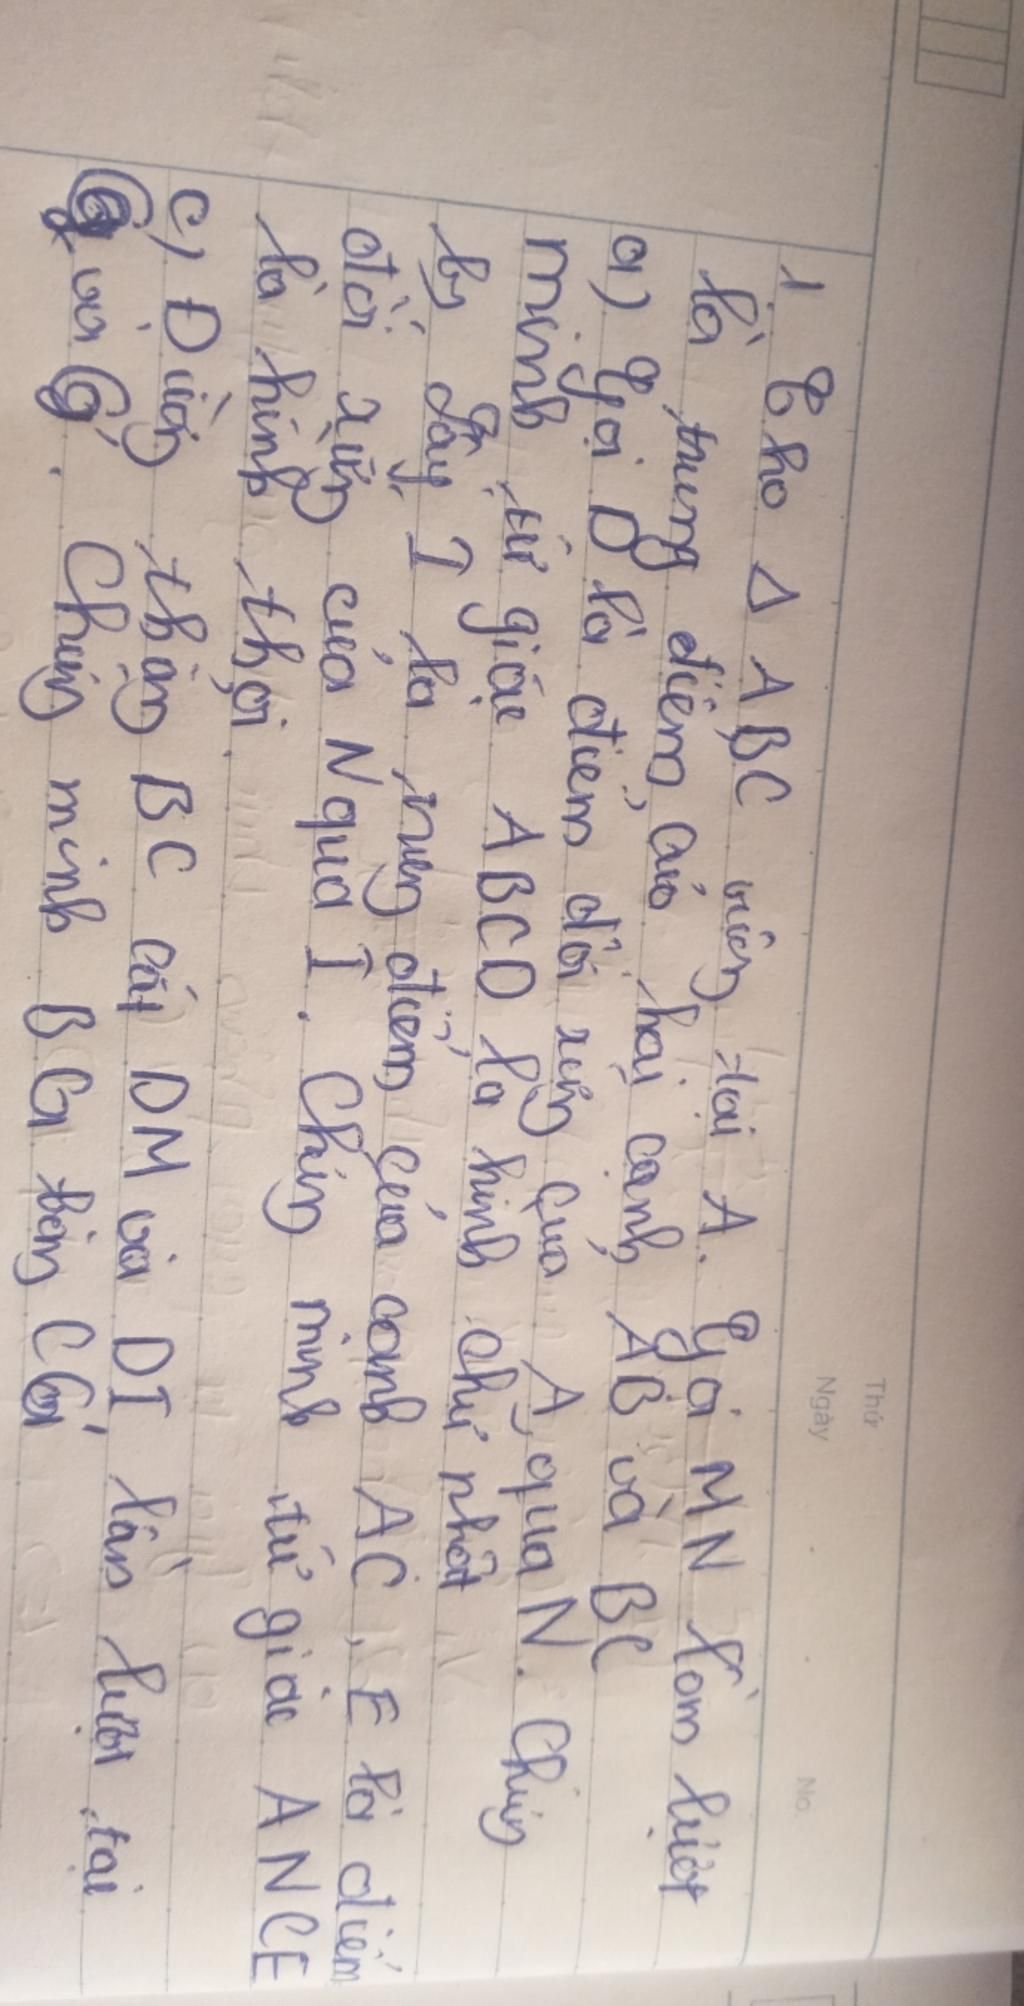 Thứ
Ngày
No.
1. Cho Δ ABC vuông tại A. Gọi MN lần lượt
là trung điểm của hai cạnh AB và BC
a) Gọi D là điểm đối xứng qua A qua N. Chứng
minh tứ giác ABCD là hình chữ nhật
b) Lấy I là trung điểm của cạnh AC, E là điểm
đối xứng của N qua I. Chứng minh tứ giác ANCE
là hình thoi.
c) Đường thẳng BC cắt DM và DI lần lượt tại
G và G'. Chứng minh BG bằng CG'